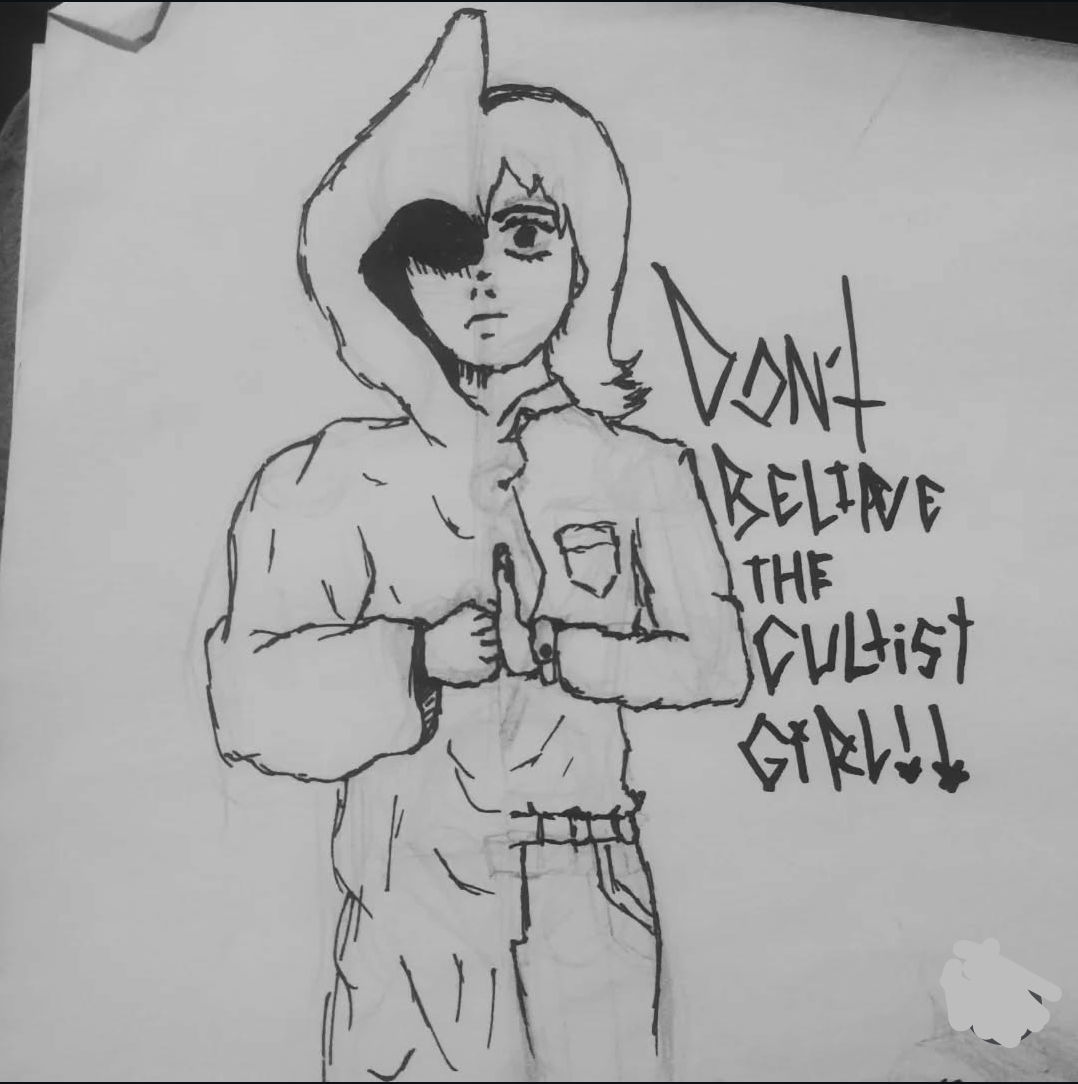 DON't
BELIEVE
THE
CULtist
GiRL!!